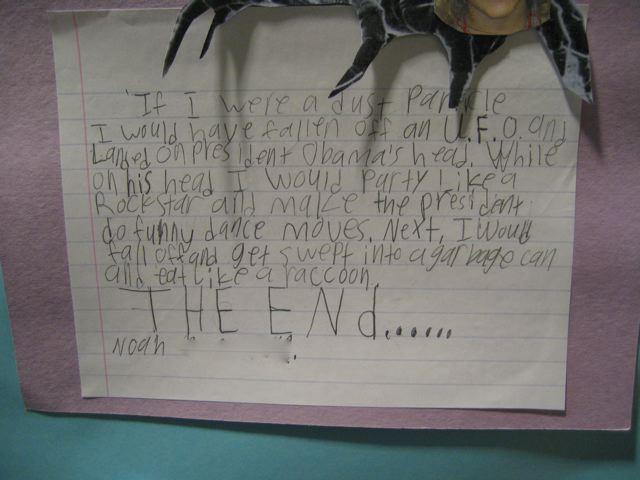 If I were a dust Particle
I would have fallen off an U.F.O. and
Landed on President Obama's head. While
on his head I would Party Like a
Rockstar and make the president
do funny dance moves. Next, I would
fall off and get swept into a garbage can
and eat Like a raccoon.
THE ENd......
Noah